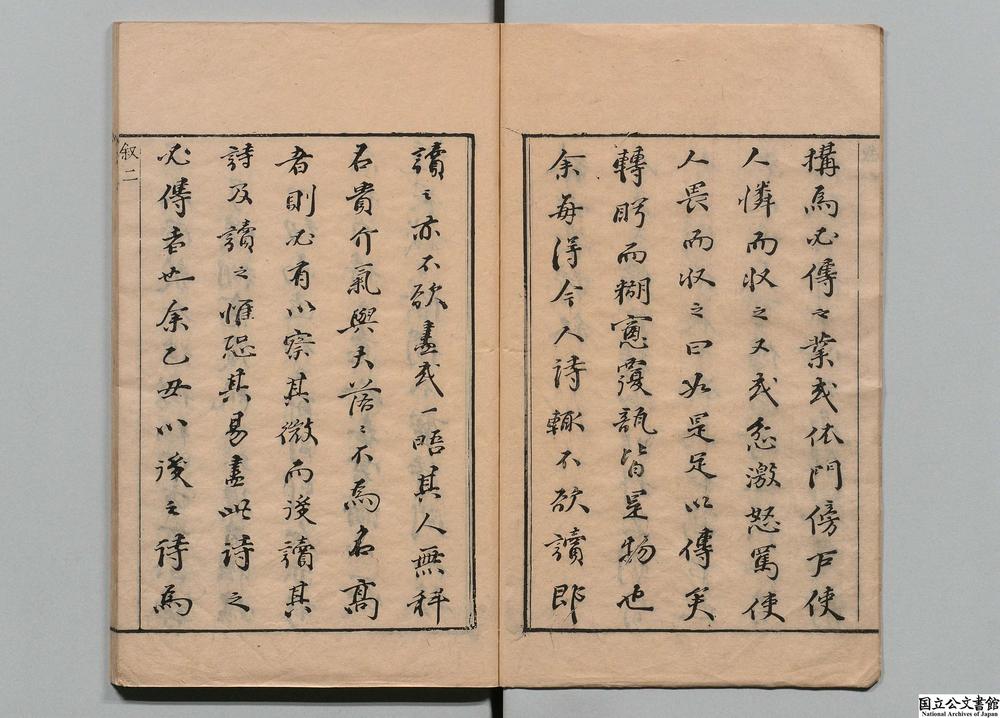 構為必傳之業或依門傍戶使
人憐而収之又或忿激怒罵使
人畏而収之曰如是足以傳矣
轉盻而糊窓覆瓿皆是物也
余每得今人詩輒不欲讀即
讀之亦不欲盡或一晤其人無科
名貴介氣與夫落之不為名高
者則必有以察其微而後讀其
詩及讀之惟恐其易盡此詩之
必傳者也余乙丑以後之詩為
叙二
国立公文書館
National Archives of Japan